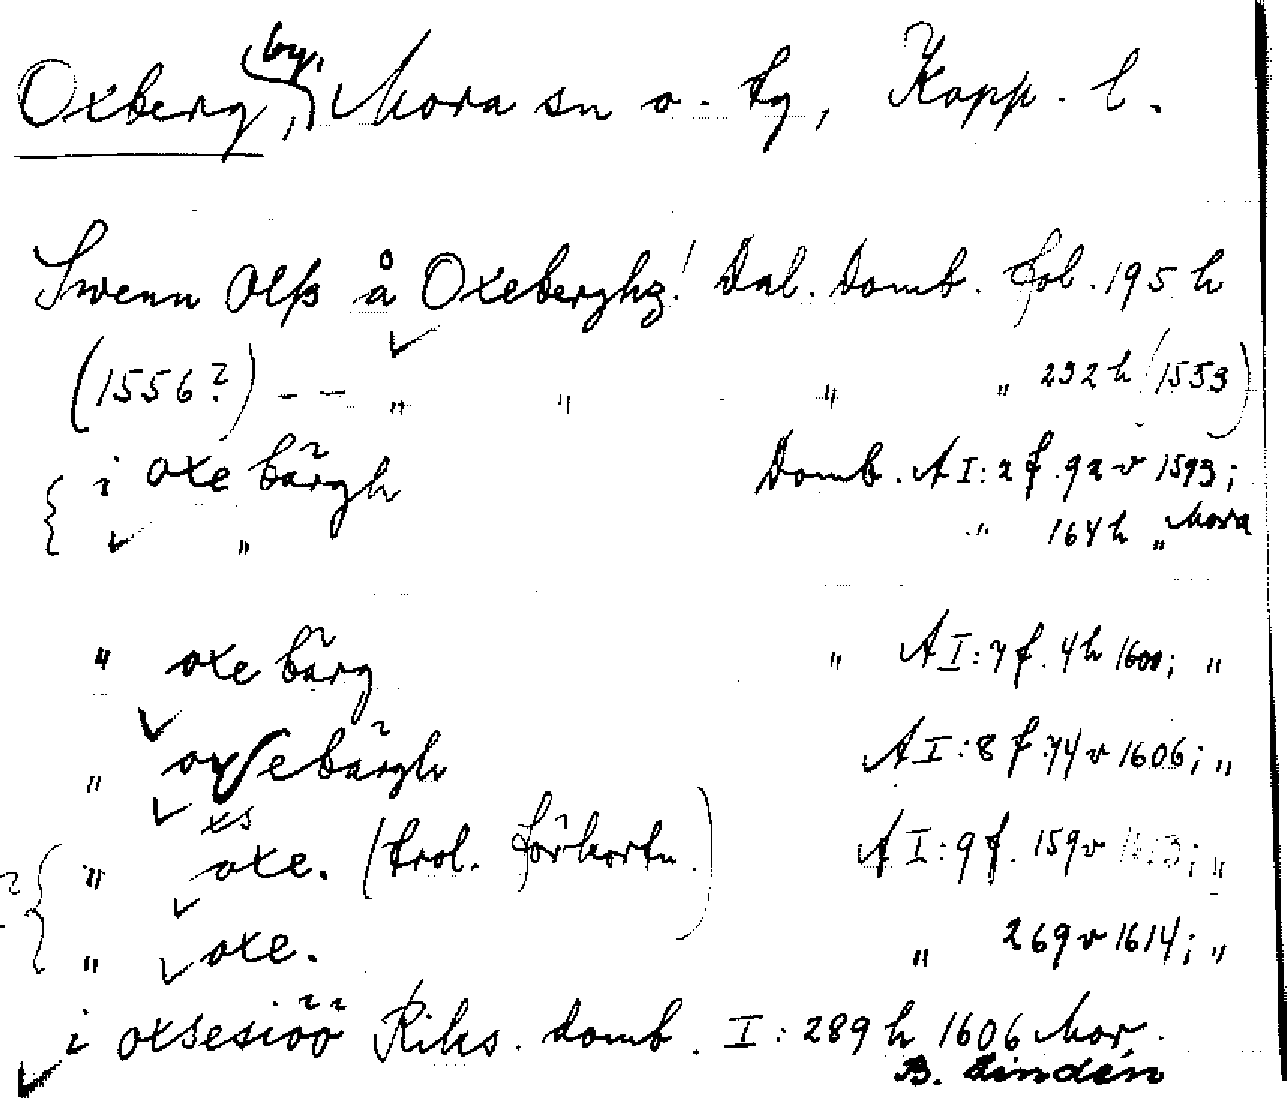 Oxberg, by, Mora sn o. tg, Kopp. l.
Swenn Olß å Oxeberghz! Dal. Domb. fol. 195 h
(1556?) - - " " " " 232 h (1553)
i oxe bärgh Domb. A I:2 f. 92 v 1593;
" 164 h " Mora
" oxe bärg " A I:7 f. 4 h 1600; "
" oxsebärgh A I:8 f. 74 v 1606; "
xs
" oxe. (trol. förkortn.) A I:9 f. 159 v 1613; "
" oxe. " 269 v 1614; "
i oxsesiöö Riks. domb. I:289 h 1606 Mor.
B. Lindén